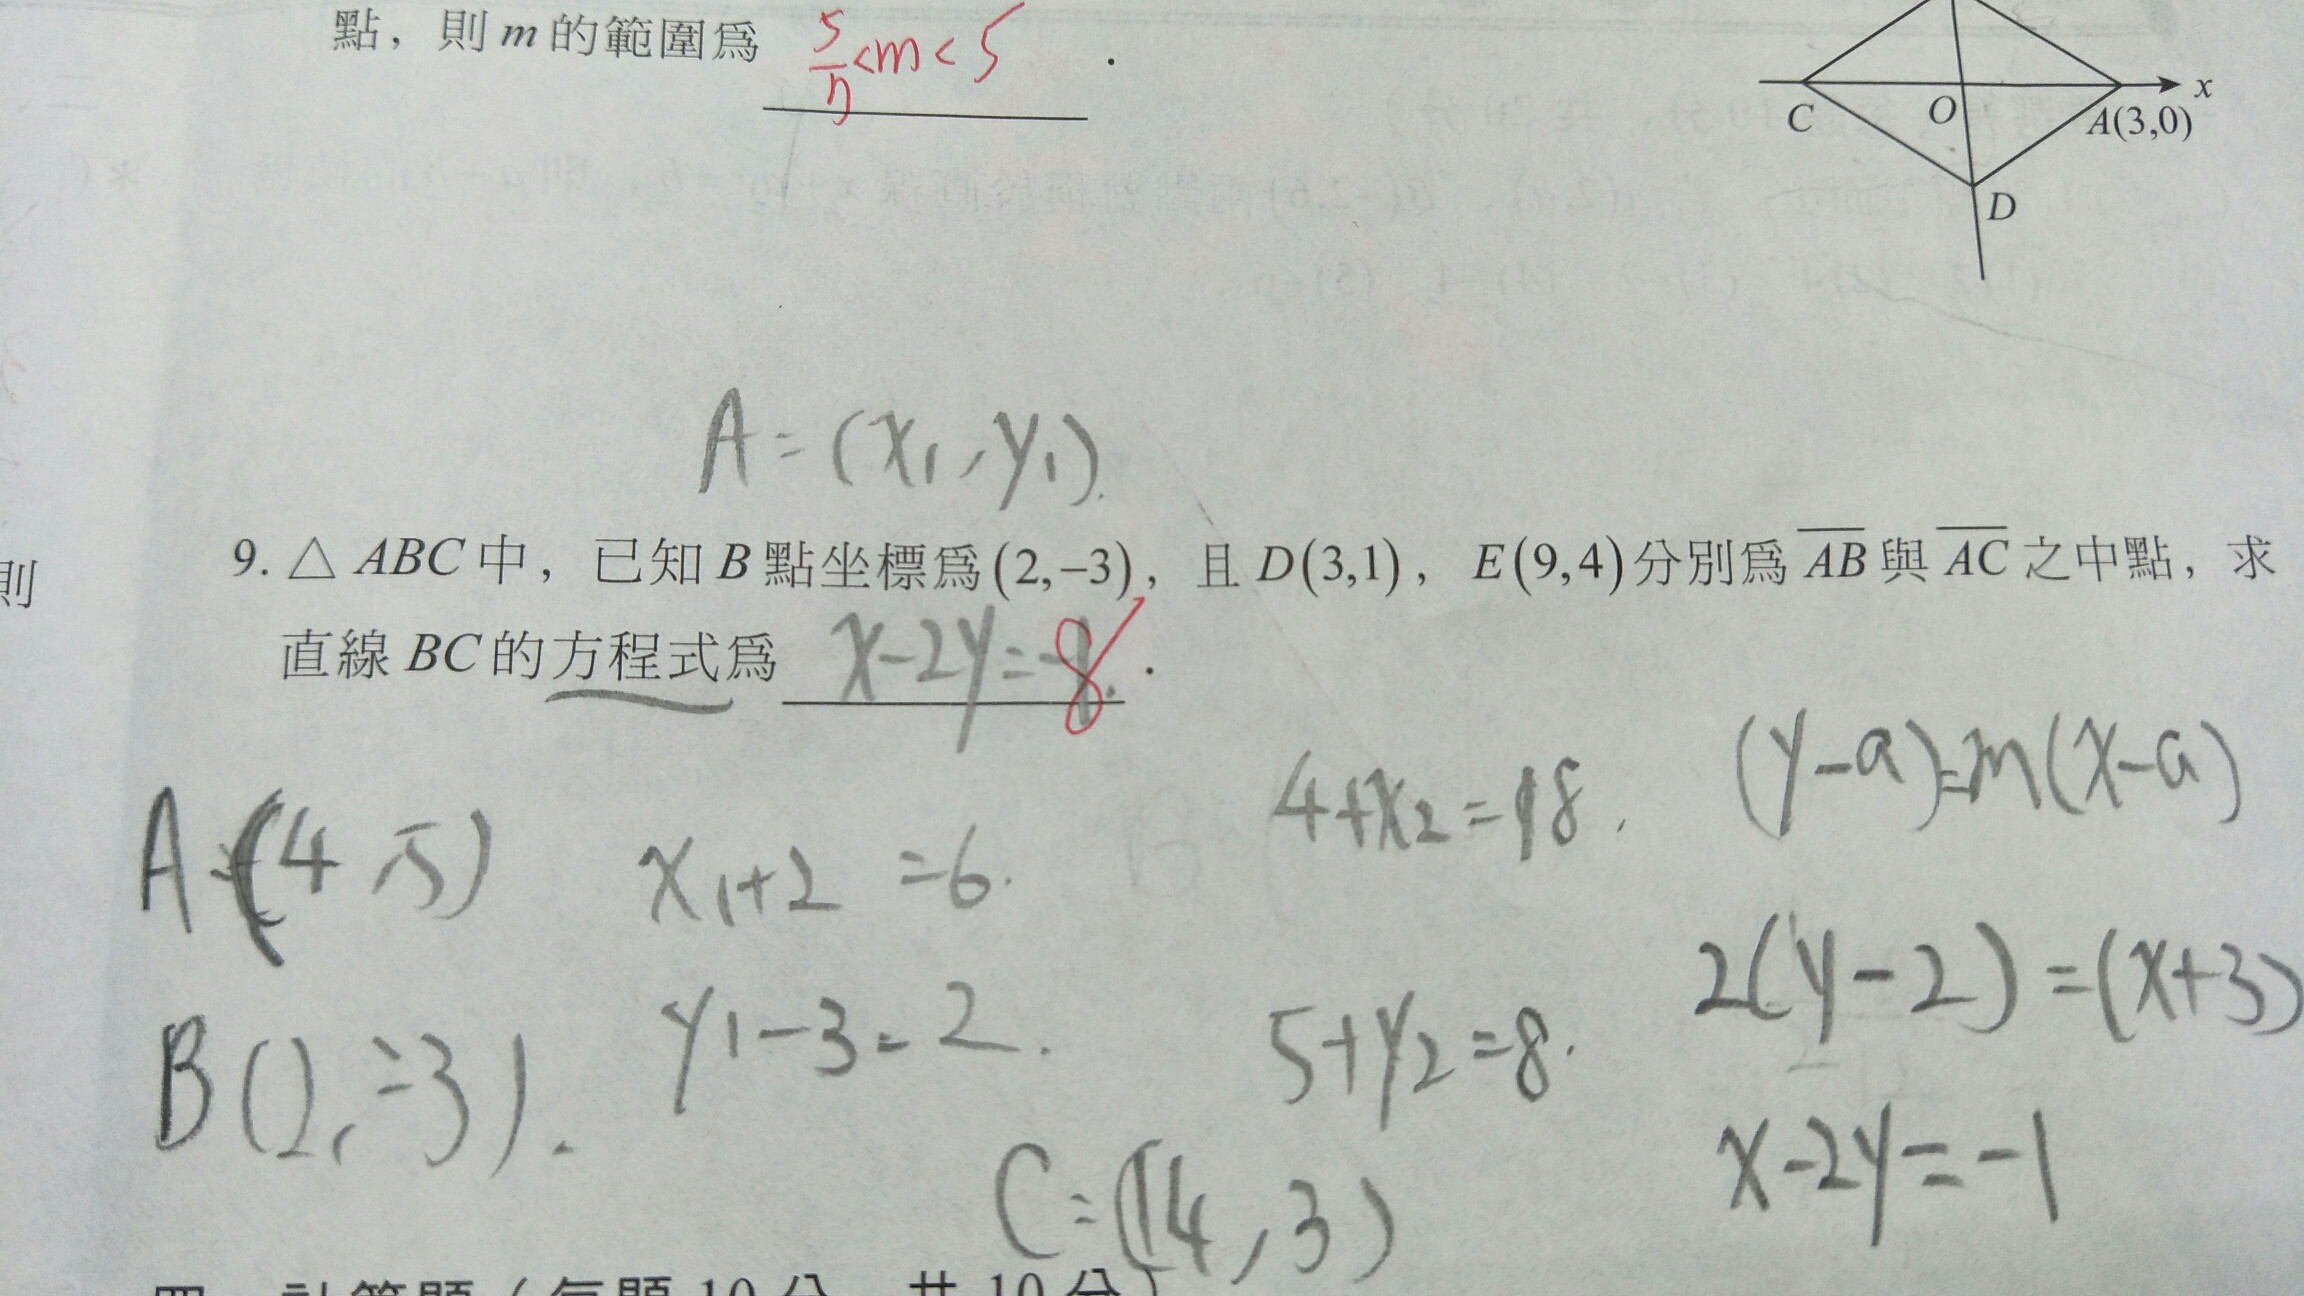 點，則 m 的範圍爲 5/9<m<5 .
x
C
O
A(3,0)
D
A=(x₁,y₁).
9. △ABC 中，已知 B 點坐標爲 (2,−3)，且 D(3,1)，E(9,4) 分別爲 AB 與 AC 之中點，求
則
直線 BC 的方程式爲 x-2y=8 .
(y-a)=m(x-a)
4+x₂=18.
A=(4 5)
x₁+2 =6.
2(y-2)=(x+3)
y₁-3=2.
5+y₂=8.
B(2,-3).
x-2y=-1
C=(14,3)
四、計算題（每題 10 分，共 10 分）